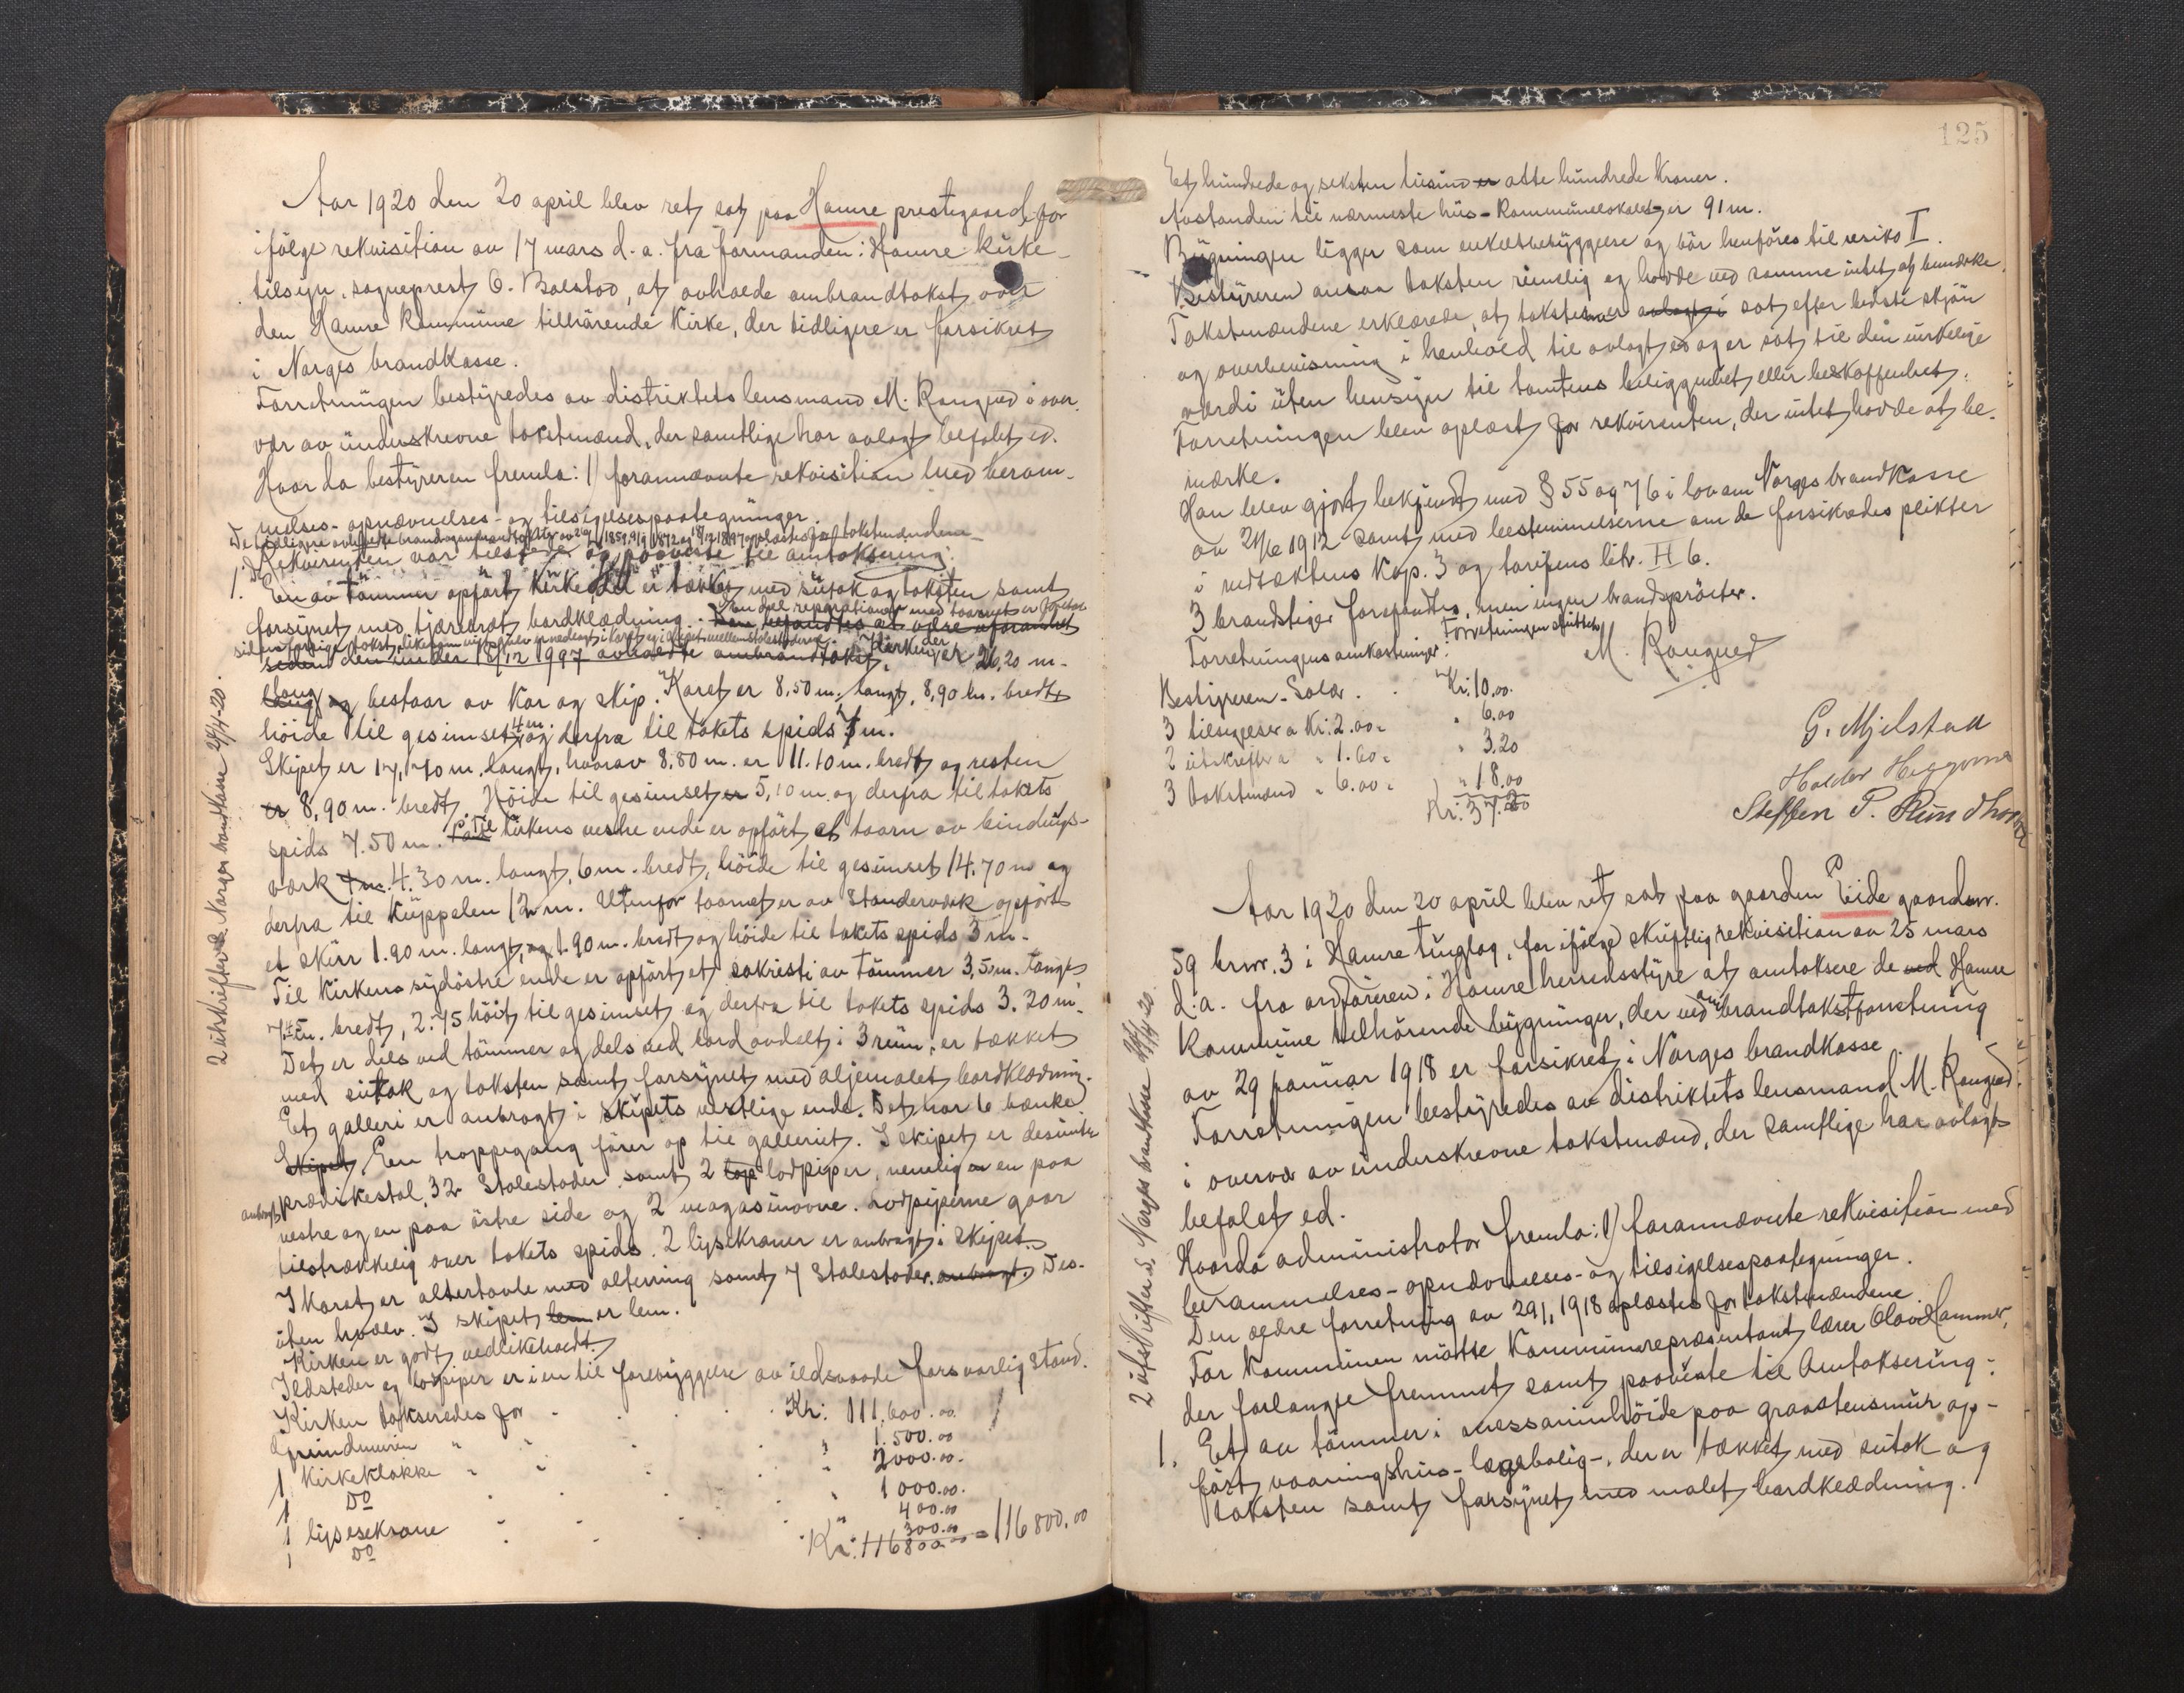 Aar 1920 den 20 april blev ret sat paa Hamre prestegaard for
ifölge rekvisition av 17 mars d.a. fra formanden i Hamre kirke-
tilsyn, sogneprest O. Bolstad, at avholde ombrandtakst over
den Hamre Kommune tilhörende Kirke, der tidligere er forsikret
i Norges brandkasse.
Forretningen bestyredes av distriktets lensmand M. Rongved i over-
vær av underskrevne takstmænd, der samtlige har avlagt befalet ed.
Hvorda bestyreren fremla: 1) forannævnte rekvisition med beram-
melses- opnævnelses- og tilsigelsespaategninger.
De tidligere avholdte brandomtakster av 1859, 1872 og 18/12 1897 oplæstes for takstmændene
Rekvirenten var tilstede og paaviste til omtaksering:
1. En av tömmer opfört Kirke. Den er tækket med sutak og taksten samt
forsynet med tjærebrædt bordklædning. Den befandtes at være uforandret
en del reparationer med taarnet er foretat
siden den under 18/12 1997 avholdte ombrandtakst. Kirken er 26,20 m.
lang og bestaar av Kor og Skip. Koret er 8,50 m. langt, 8,90 m. bredt
höide til gesimset 4 m. og derfra til takets spids 7 m.
Skipet er 17,70 m. langt, hvorav 8,80 m. er 11.10 m. bredt og resten
er 8,90 m. bredt. Höide til gesimset er 5,10 m. og derfra til takets
spids 7.50 m. Paa Til Kirkens vestre ende er opfört et taarn av bindings-
værk 4 m. 4.30 m. langt, 6 m. bredt, höide til gesimset 14.70 m og
derfra til Kuppelen 12 m. Utenfor taarnet er av Standerværk opfört
et skur 1.90 m. langt, og 1.90 m. bredt og höide til takets spids 3 m.
Til Kirkens sydöstre ende er opfört et sakristi av tömmer 3,50 m. langt
7 m. bredt, 2.75 höit til gesimset og derfra til takets spids 3.20 m.
Det er dels ved tömmer og dels ved bord avdelt i 3 rum, er tækket
med sutak og taksten samt forsynet med oljemalet bordklædning.
Et galleri er anbragt i skipets vestlige ende. Det har 6 bænke
Skipet En trappegang förer op til galleriet. I skipet er desuten
anbragt prædikestol, 32 Stolestader samt 2 lodpiper, nemlig en en paa
vestre og en paa östre side og 2 magasinovne. Lodpiperne gaar
tilstrækkelig over takets spids. 2 lysekroner er anbragt i skipet.
I Koret er altertavle med altering samt 7 Stolestader. anbragt. Des-
uten hvælv. I skipet lem er lem.
Kirken er godt vedlikeholdt.
Ildsteder og lodpiper er i en til forebyggelse av ildsvaade forsvarlig stand.
Kirken takseredes for Kr: 111,600.00
Grundmuren " " 1.500.00
1 Kirkeklokke " " 2000.00
1 Do " 1000.00
1 lysekrone 400.00
1 Do 300.00
Kr: 116800.00 = 116800.00
2 utskrifter s. Norges brandkasse 24/4-20.
125
Et hundrede og seksten tusind er otte hundrede Kroner.
Avstanden til nærmeste hus - Kommunelokalet er 91 m.
Bygningen ligger som enkeltbebyggelse og bör henföres til risiko I.
Bestyreren ansaa taksten rimelig og hadde ved samme intet at bemærke.
Takstmændene erklærede, at taksten er avlagt i sat efter bedste skjön
og overbevisning i henhold til avlagt ed og er sat til den virkelige
værdi uten hensyn til tomtens beliggenhet eller beskaffenhet.
Forretningen blev oplæst for rekvirenten, der intet hadde at be-
mærke.
Han blev gjort bekjendt med § 55 og 76 i lov om Norges brandkasse
av 21/6 1912 samt med bestemmelserne om de forsikredes plikter
i vedtæktens Kap. 3 og tarifens litr. H 6.
3 brandstiger forefandtes, men ingen brandspröiter.
Forretningen sluttet
Forretningens omkostninger:
M. Rongved
Bestyreren - Salær . . Kr: 10,00.
3 tilsigelser a Kr: 2.00 = " 6.00
2 utskrifter a " 1.60 = " 3.20
3 takstmænd " 6.00 = " 18.00
Kr: 37.20
G. Mjelstad
Haldor Heggernes
Steffen P. Rundhovde
Aar 1920 den 20 april blev ret sat paa gaarden Eide gaardsnr.
59 brnr. 3 i Hamre tinglag, for ifölge skriftlig rekvisition av 25 mars
d.a. fra ordföreren i Hamre herredsstyre at omtaksere de ved Hamre
Kommune tilhörende bygninger, der ved ombrandtakstforretning
av 29 januar 1918 er forsikret i Norges brandkasse.
Forretningen bestyredes av distriktets lensmand M. Rongved
i overvær av underskrevne takstmænd, der samtlige har avlagt
befalet ed.
Hvorda administrator fremla: 1) forannævnte rekvisition med
berammelses- opnævnelses- og tilsigelsespaategninger.
Den ældre forretning av 29/1 1918 oplæstes for takstmændene
For Kommunen mötte Kommunerepræsentant lærer Olav Hammer,
der forlangte fremmet samt paaviste til Omtaksering:
1. Et av tömmer i messaninhöide paa graastensmur op-
fört vaaningshus - lægebolig -, der er tækket med sutak og
taksten samt forsynet med malet bordklædning.
2 utskrifter s. Norges brandkasse 24/4 20.